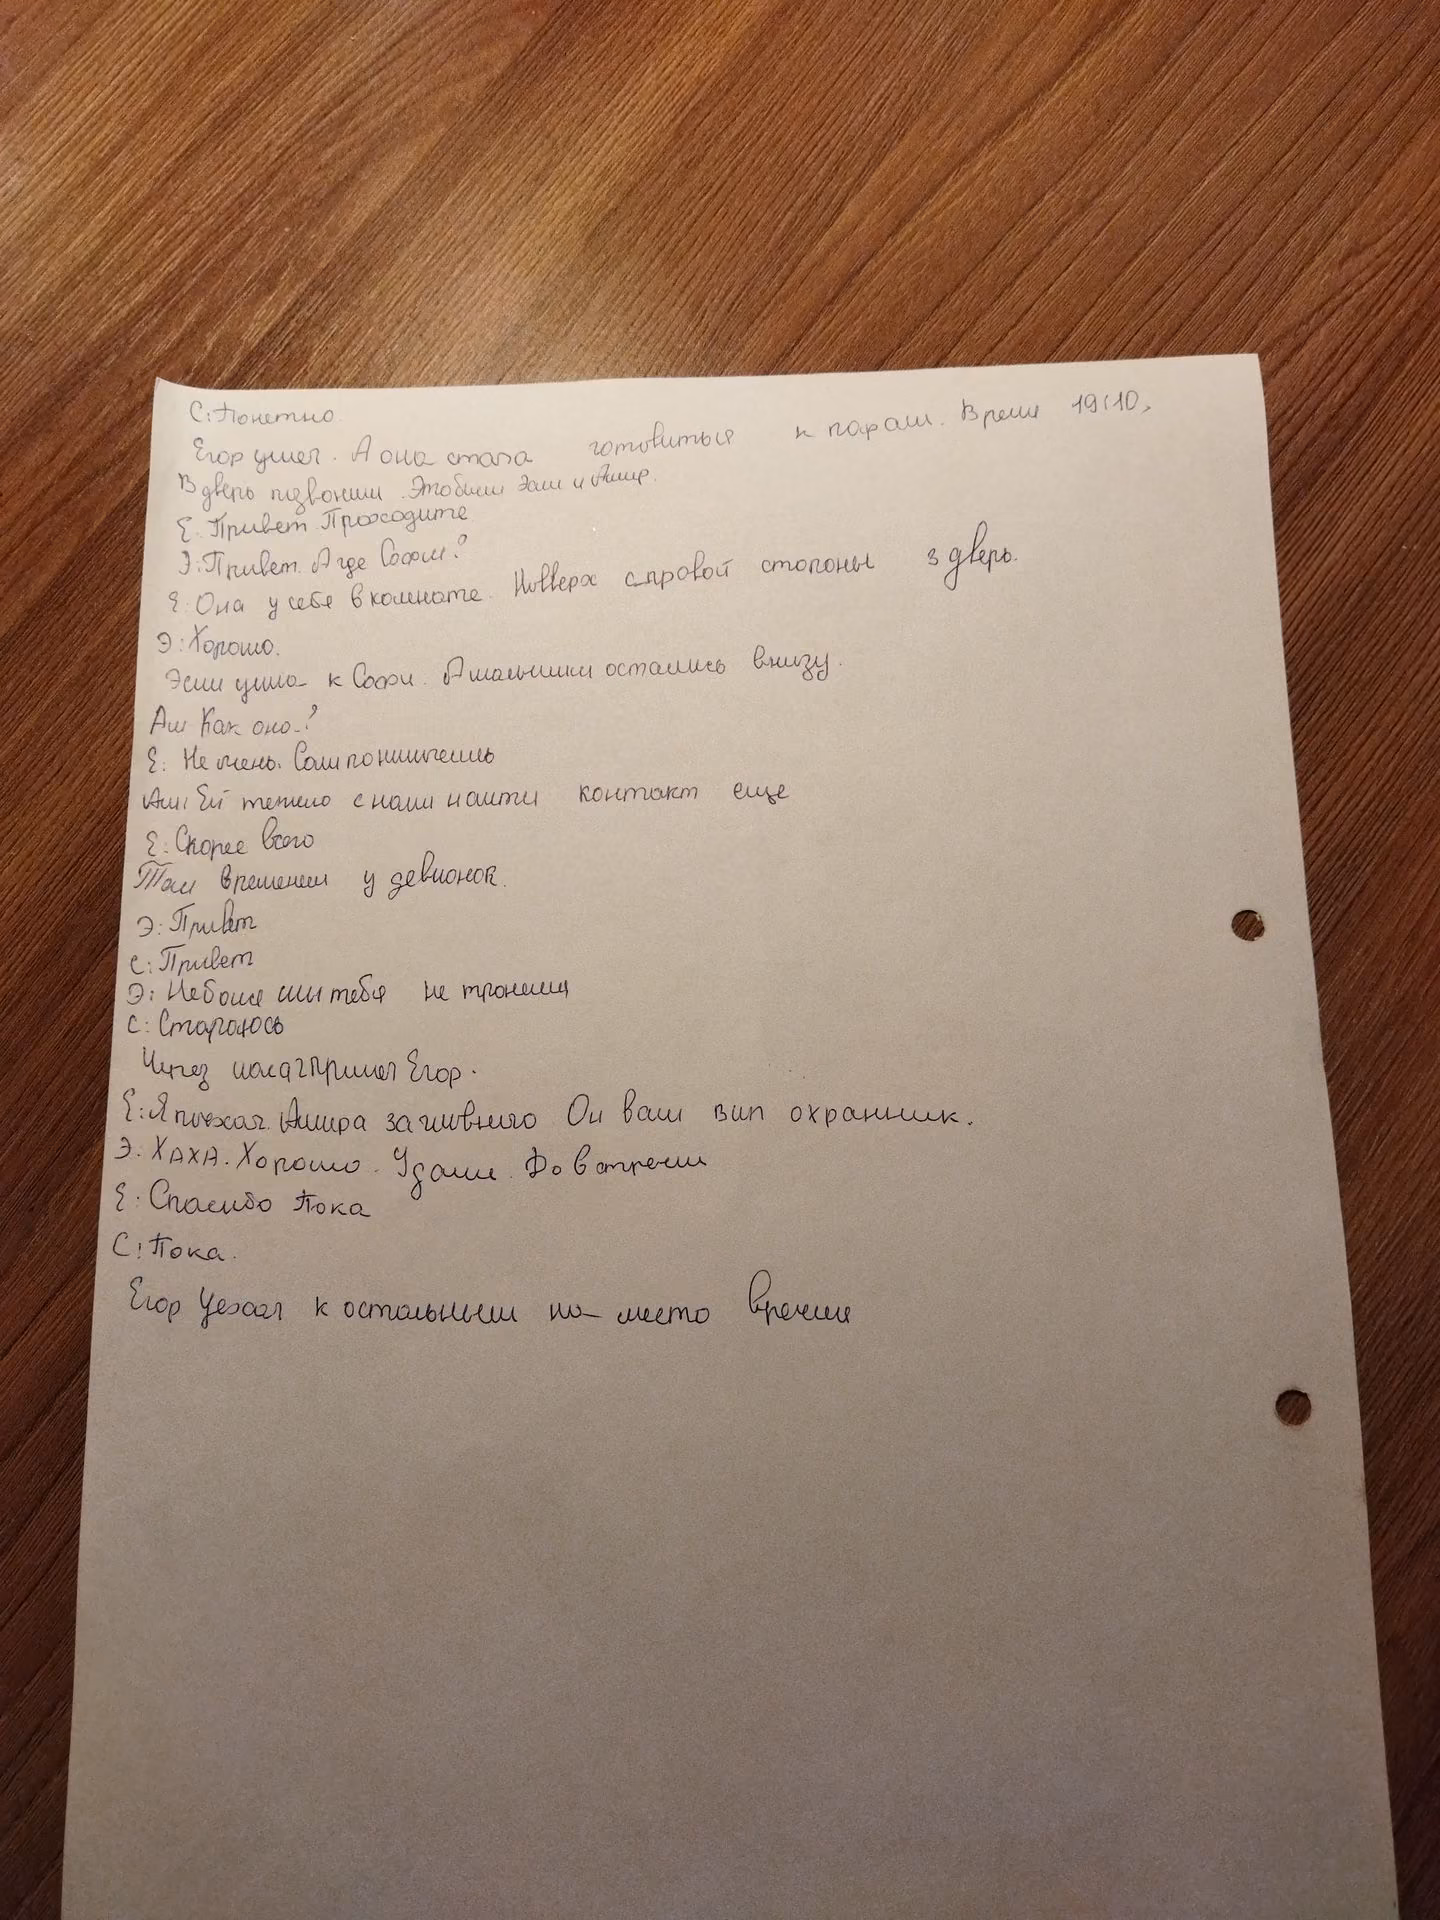 С: Понетно.
Егор ушел. А она стала готовиться к парам. Время 19:10.
В дверь позвонили. Это были Эми и Амир.
Е: Привет. Проходите
Э: Привет. А где Софи?
Е: Она у себя в комнате. Новверх с провой стороны 3 дверь.
Э: Хорошо.
Эми ушла к Софи. А мальчики остались внизу.
Ам: Как оно?
Е: Не очень. Сам понимаешь
Ам: Ей тежело с нами найти контакт еще
Е: Скорее всего
Тем временем у девчонок.
Э: Привет
С: Привет
Э: Не бойся мы тебя не тронем
С: Стараюсь
Через часа 2 пришел Егор.
Е: Я поехал. Амира за главного Он ваш вип охранник.
Э: ХАХА. Хорошо. Удачи. До встречи
Е: Спасибо Пока
С: Пока.
Егор уехал к остальным на место встречи